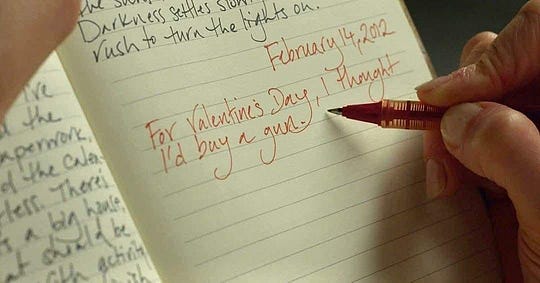 the
Darkness settles slow
rush to turn the lights on.
February 14, 2012
For Valentine's Day, I thought
I'd buy a gun.
the
aperwork,
d the cale
less. There's
a big house
at should be
activity